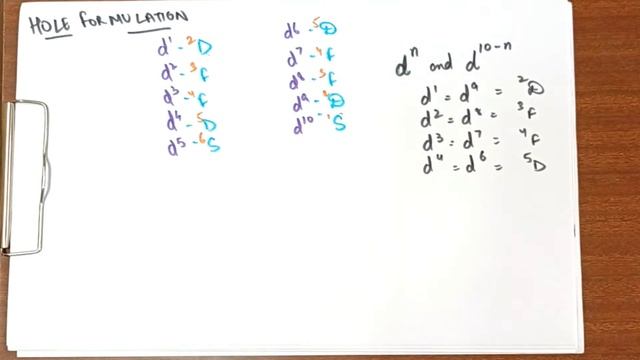 HOLE FORMULATION
d¹ - ²D
d² - ³F
d³ - ⁴F
d⁴ - ⁵D
d⁵ - ⁶S
d6 - ⁵D
d7 - ⁴F
d8 - ³F
d9 - ²D
d10 - ¹S
dⁿ and d¹⁰⁻ⁿ
d¹ = d⁹ = ²D
d² = d⁸ = ³F
d³ = d⁷ = ⁴F
d⁴ = d⁶ = ⁵D